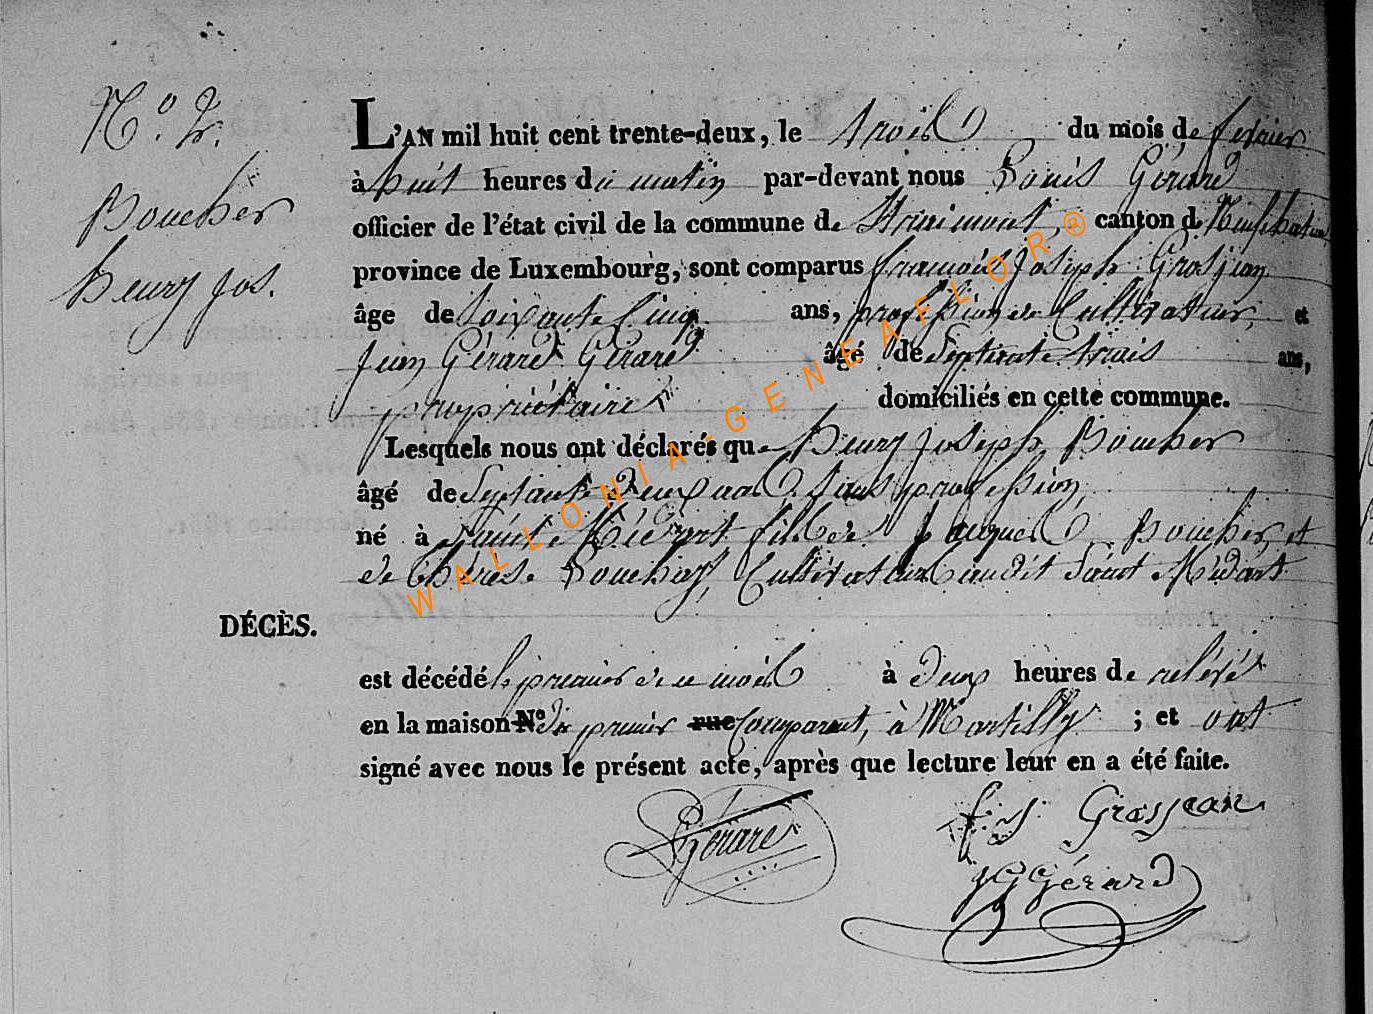 N.º 2.
Boucher
henry jos.
L'AN mil huit cent trente-deux, le trois du mois de fevrier
à huit heures du matin par-devant nous Louis Gérard
officier de l'état civil de la commune de Straimont, canton de Neufchateau
province de Luxembourg, sont comparus francois Joseph Grosjean
âge de soixante Cinq ans, profession de Cultivateur, et
Jean Gérard Gérard âgé de Septante trois ans,
propriétaire domiciliés en cette commune.
Lesquels nous ont déclarés que henry joseph Boucher
âgé de Septante Deux ans, sans profession,
né à Saint Médart fils de Jacques Boucher, et
de therese Bouchat, Cultivateurs audit Saint Médart
DÉCÈS.
est décédé le premier de ce mois à Deux heures de relévé
en la maison Nº du premier rue Comparant, à Martilly ; et ont
signé avec nous le présent acte, après que lecture leur en a été faite.
L Gérard
f. j. Grosjean
JG Gérard
WALLONIA-GENEAFLOR®